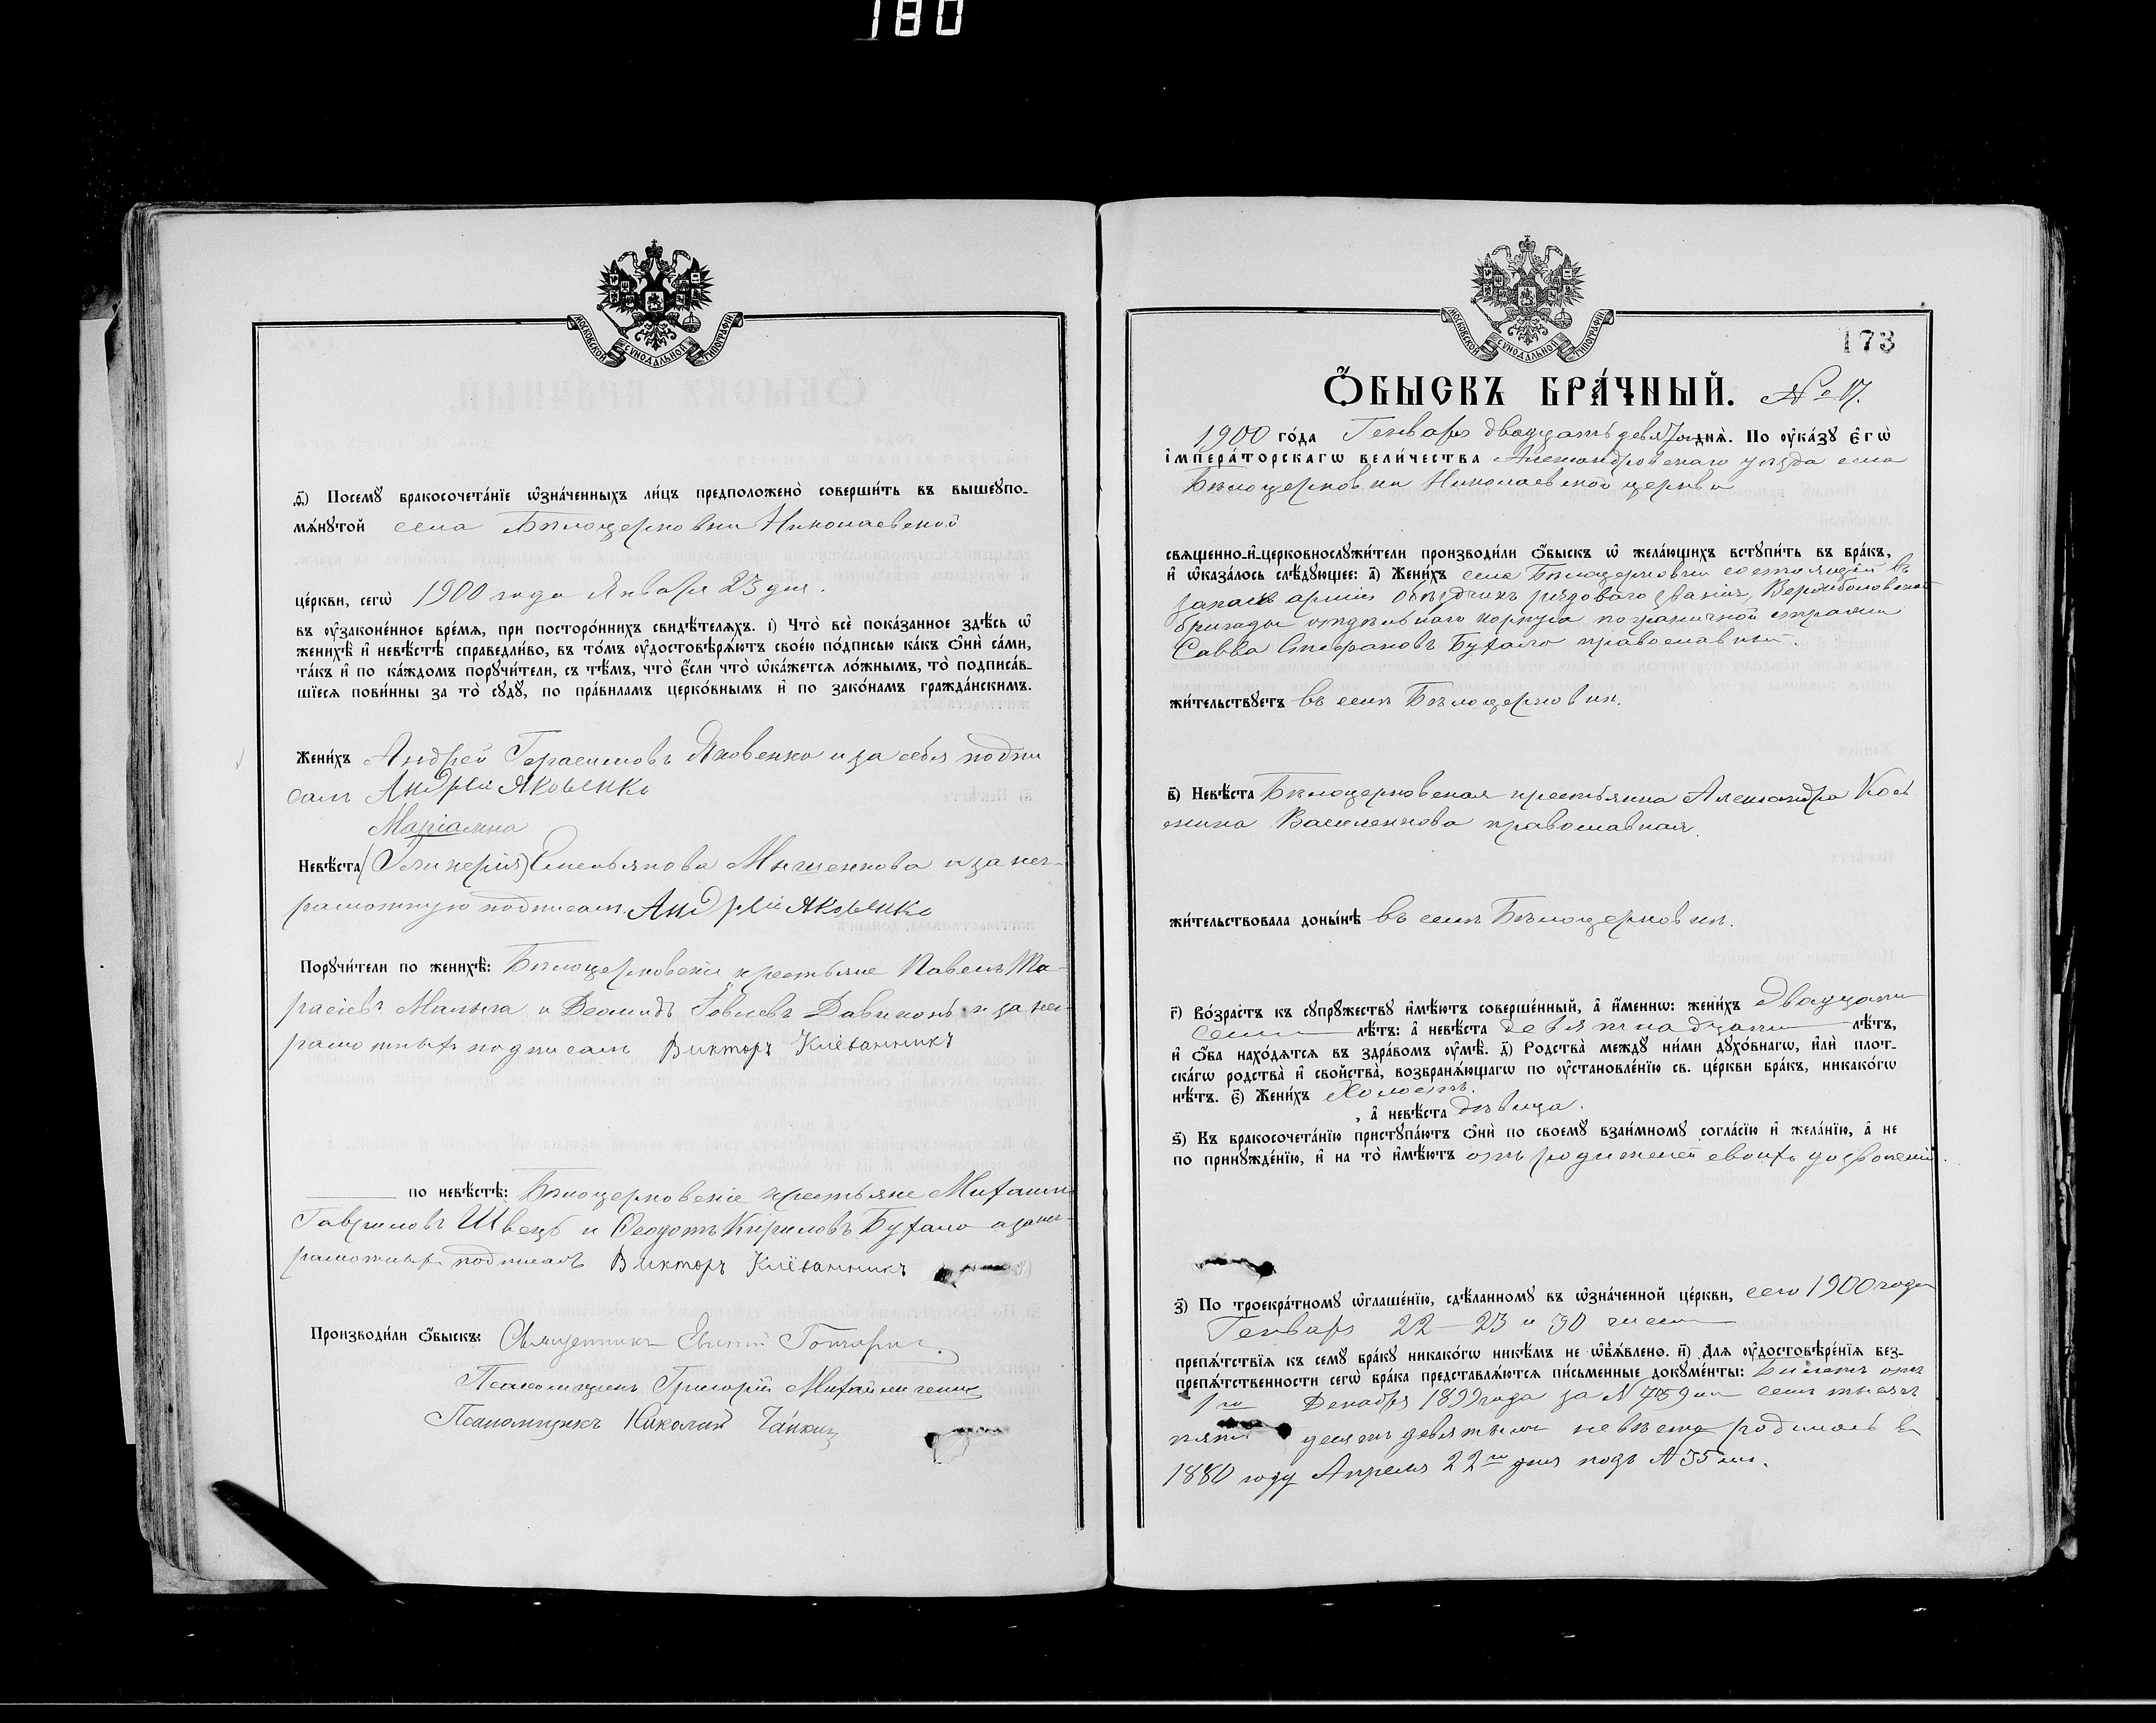 180
МОСКОВСКОЙ СѴНОДАЛЬНОЙ ТИПОГРАФІИ
ѳ҃) Посемꙋ̀ бракосочета́нїе ѡ҆зна́ченныхъ ли́цъ предположено̀ соверши́ть въ вышеꙋпо-
мѧ́нꙋтой села Бѣлоцерковки Николаевской
це́ркви, сегѡ̀ 1900 года Января 23 дня.
въ ᲂу҆зако́ненное вре́мѧ, при посторо́ннихъ свидѣ́телѧхъ. і҃) Что̀ всѐ пока́занное здѣ́сь ѡ҆
женихѣ̀ и҆ невѣ́стѣ справедли́во, въ то́мъ ᲂу҆достовѣрѧ́ютъ свое́ю по́дписью ка́къ ѻ҆нѝ са́ми,
та́къ и҆ по ка́ждомъ порꙋчи́тели, съ тѣ́мъ, что̀ є҆́сли что̀ ѡ҆ка́жетсѧ ло́жнымъ, то̀ подписа́в-
шїесѧ пови́нны за то̀ сꙋдꙋ̀, по пра́виламъ церко́внымъ и҆ по зако́намъ гражда́нскимъ.
Жени́хъ Андрей Герасимовъ Яковенко и за себя подпи
салъ Андрей Яковенко
Маріамна
Невѣ́ста (Гликерія) Емельянова Мищенкова а за нег-
рамотную подписалъ Андрей Яковенко
Порꙋчи́тели по женихѣ̀: Бѣлоцерковскіе крестьяне Павелъ Та-
расіевъ Малыга и Деомидъ Іовлевъ а за нег-
рамотныхъ подписалъ Викторъ Клёванникъ
по невѣ́стѣ: Бѣлоцерковскіе крестьяне Михаилъ
Гавриловъ Швецъ и Ѳеодотъ Кириловъ Бухало а за нег-
рамотныхъ подписалъ Викторъ Клёванникъ
Производи́ли ѻ҆́быскъ: Священникъ Евгеній
Псаломщикъ Григорій
Псаломщикъ Николай
МОСКОВСКОЙ СѴНОДАЛЬНОЙ ТИПОГРАФІИ
173
Ѻ҆́БЫСКЪ БРА́ЧНЫЙ. № 17.
1900 го́да Генваря двадцать девятаго днѧ̀. По ᲂу҆ка́зꙋ Є҆гѡ̀
І҆мпера́торскагѡ вели́чества Александровскаго уѣзда села
Бѣлоцерковки Николаевской церкви
свѧще́нно-и҆-церковнослꙋжи́тели производи́ли ѻ҆́быскъ ѡ҆ жела́ющихъ встꙋпи́ть въ бра́къ,
и҆ ѡ҆каза́лось слѣ́дꙋющее: а҃) Жени́хъ села Бѣлоцерковки состоящій въ
запасѣ арміи объѣздчикъ рядоваго званія, Вержболовской
бригады отдѣльнаго корпуса пограничной стражи
Савва Стефановъ Бухало православный.
жи́тельствꙋетъ въ селѣ Бѣлоцерковкѣ.
в҃) Невѣ́ста Бѣлоцерковская крестьянка Александра Кось
мина Василенкова православная.
жи́тельствовала доны́нѣ въ селѣ Бѣлоцерковкѣ.
г҃) Во́зрастъ къ сꙋпрꙋ́жествꙋ и҆мѣ́ютъ соверше́нный, а҆ и҆́меннѡ: жени́хъ Двадцати
семи лѣ́тъ: а҆ невѣ́ста девятнадцати лѣ́тъ,
и҆ ѻ҆́ба нахо́дѧтсѧ въ здра́вомъ ᲂу҆мѣ̀. д҃) Родства̀ междꙋ̀ ни́ми дꙋхо́внагѡ, и҆лѝ плот-
ска́гѡ родства̀ и҆ свойства̀, возбранѧ́ющагѡ по ᲂу҆становле́нїю св. це́ркви бра́къ, никако́гѡ
нѣ́тъ. є҃) Жени́хъ Холостъ.
, а҆ невѣ́ста дѣвица.
ѕ҃) Къ бракосочета́нїю пристꙋпа́ютъ ѻ҆нѝ по своемꙋ̀ взаи́мномꙋ согла́сїю и҆ жела́нїю, а҆ не
по принꙋжде́нїю, и҆ на то̀ и҆мѣ́ютъ отъ родителей своихъ дозволеніе.
з҃) По троекра́тномꙋ ѡ҆глаше́нїю, сдѣ́ланномꙋ въ ѡ҆зна́ченной це́ркви, сего 1900 года
Генваря 22—23 и 30 чиселъ
препѧ́тствїѧ къ семꙋ̀ бра́кꙋ никако́гѡ никѣ́мъ не ѡ҆б̾ѧ́влено. и҃) Длѧ ᲂу҆достовѣре́нїѧ без-
препѧ́тственности сегѡ̀ бра́ка представлѧ́ютсѧ пи́сьменные докꙋме́нты: Билетъ отъ
1го Декабря 1899 года за № семь тысячъ
пять десятъ девятымъ невѣста родилась въ
1880 году Апреля 22го дня подъ № 35мъ.